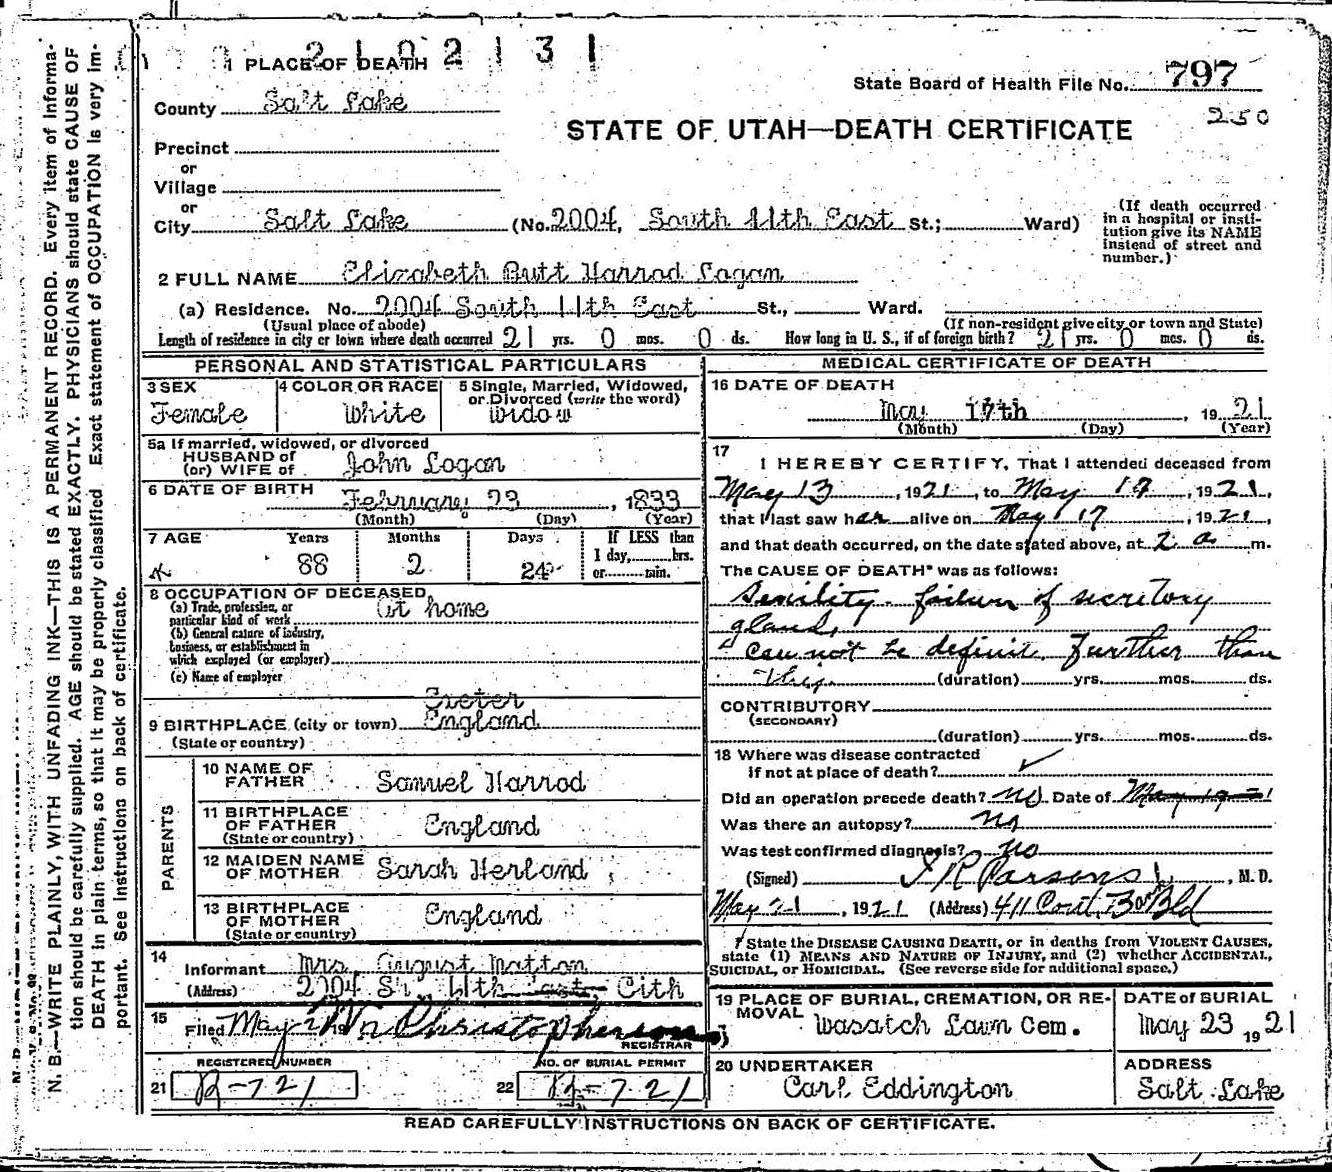 2 1 0 2 1 3 1
1 PLACE OF DEATH
State Board of Health File No. 797
250
County Salt Lake
STATE OF UTAH—DEATH CERTIFICATE
Precinct
or
Village
or
City Salt Lake (No. 2004, South 11th East St.; Ward)
(If death occurred in a hospital or insti-
tution give its NAME
instead of street and
number.)
2 FULL NAME Elizabeth Butt Harrod Logan
(a) Residence. No. 2004 South 11th East St., Ward.
(Usual place of abode) (If non-resident give city or town and State)
Length of residence in city or town where death occurred 21 yrs. 0 mos. 0 ds. How long in U. S., if of foreign birth? 21 yrs. 0 mos. 0 ds.
PERSONAL AND STATISTICAL PARTICULARS
3 SEX
Female
4 COLOR OR RACE
White
5 Single, Married, Widowed,
or Divorced (write the word)
Widow
5a If married, widowed, or divorced
HUSBAND of
(or) WIFE of John Logan
6 DATE OF BIRTH February 23, 1833
(Month) (Day) (Year)
7 AGE Years Months Days If LESS than
1 day, hrs.
or min.
88 2 24
8 OCCUPATION OF DECEASED
(a) Trade, profession, or
particular kind of work At home
(b) General nature of industry,
business, or establishment in
which employed (or employer)
(c) Name of employer
Exeter
9 BIRTHPLACE (city or town) England
(State or country)
PARENTS
10 NAME OF
FATHER Samuel Harrod
11 BIRTHPLACE
OF FATHER England
(State or country)
12 MAIDEN NAME
OF MOTHER Sarah Herland
13 BIRTHPLACE
OF MOTHER England
(State or country)
14
Informant Mrs. August Matton
(Address) 2004 So. 11th East, City
15
Filed May Wm Christopherson
REGISTRAR
REGISTERED NUMBER NO. OF BURIAL PERMIT
21 B-721 22 B-721
MEDICAL CERTIFICATE OF DEATH
16 DATE OF DEATH
May 17th, 1921
(Month) (Day) (Year)
17
I HEREBY CERTIFY, That I attended deceased from
May 13, 1921, to May 17, 1921,
that I last saw her alive on May 17, 1921,
and that death occurred, on the date stated above, at 2 a m.
The CAUSE OF DEATH* was as follows:
Senility. failure of secretory
gland,
can not be definite further than
this. (duration) yrs. mos. ds.
CONTRIBUTORY
(SECONDARY)
(duration) yrs. mos. ds.
18 Where was disease contracted
if not at place of death?
Did an operation precede death? no Date of May 19 21
Was there an autopsy? no
Was test confirmed diagnosis? no
(Signed) J R Parsons, M. D.
May 21, 1921 (Address) 411 Cont. Bank Bld
* State the DISEASE CAUSING DEATH, or in deaths from VIOLENT CAUSES,
state (1) MEANS AND NATURE OF INJURY, and (2) whether ACCIDENTAL,
SUICIDAL, or HOMICIDAL. (See reverse side for additional space.)
19 PLACE OF BURIAL, CREMATION, OR RE-
MOVAL Wasatch Lawn Cem.
DATE of BURIAL
May 23 1921
20 UNDERTAKER
Carl Eddington
ADDRESS
Salt Lake
READ CAREFULLY INSTRUCTIONS ON BACK OF CERTIFICATE.
N. B.—WRITE PLAINLY, WITH UNFADING INK—THIS IS A PERMANENT RECORD. Every item of informa-
tion should be carefully supplied. AGE should be stated EXACTLY. PHYSICIANS should state CAUSE OF
DEATH in plain terms, so that it may be properly classified. Exact statement of OCCUPATION is very im-
portant. See instructions on back of certificate.